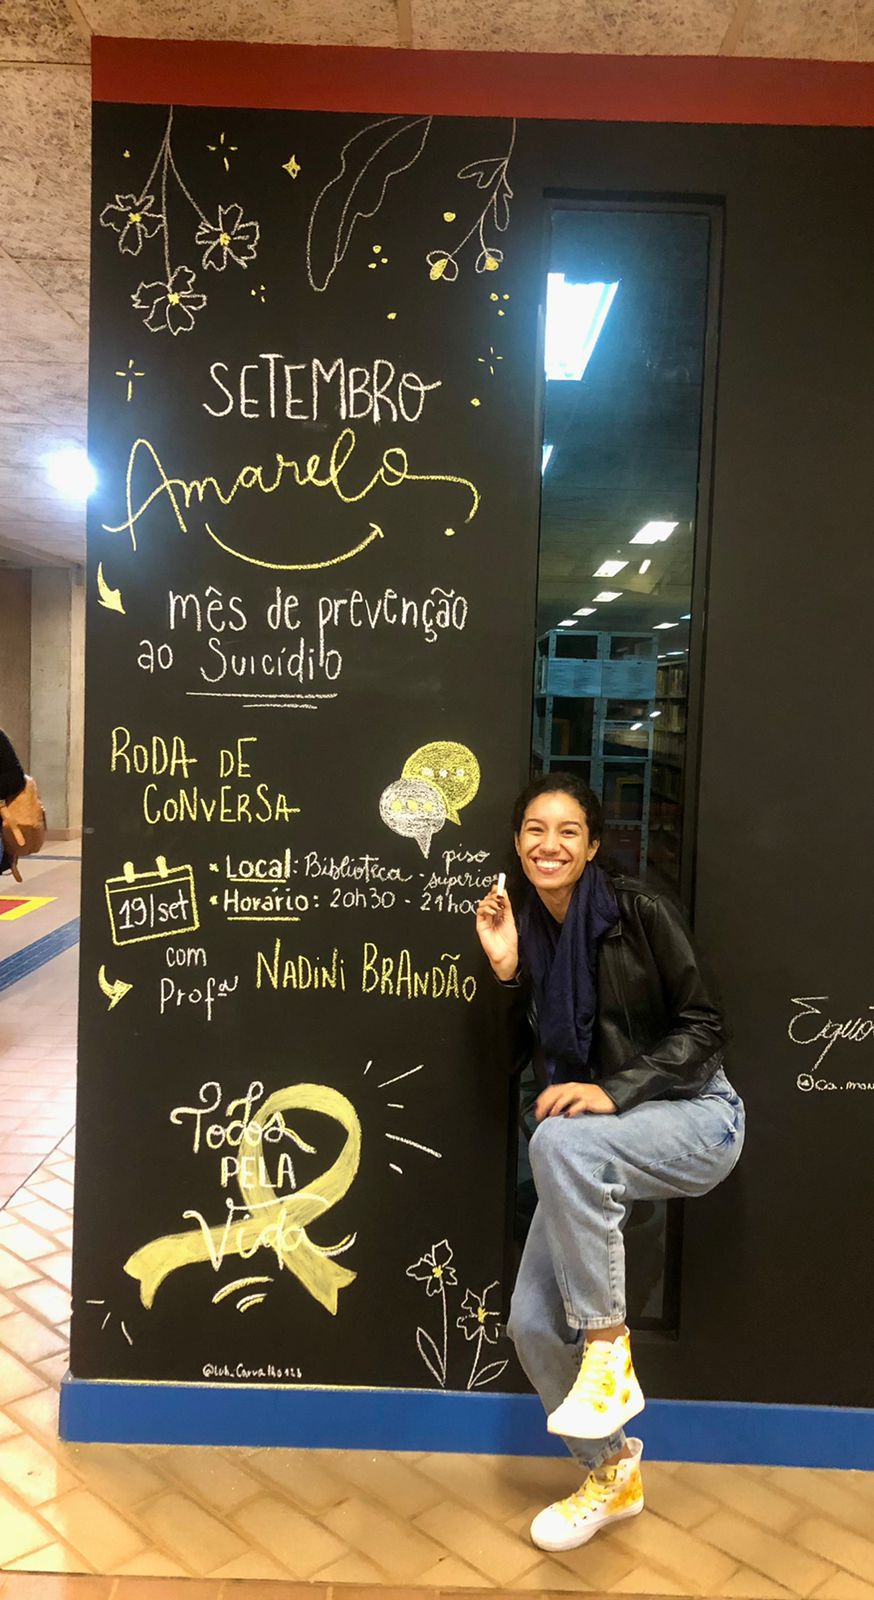 SETEMBRO
Amarelo
mês de prevenção
ao Suicídio
RODA DE
CONVERSA
19/set
• Local: Biblioteca - piso
superior
• Horário: 20h30 - 21h
com
Profª NADINI BRANDÃO
Todos
PELA
Vida
@luh_Carvalho128